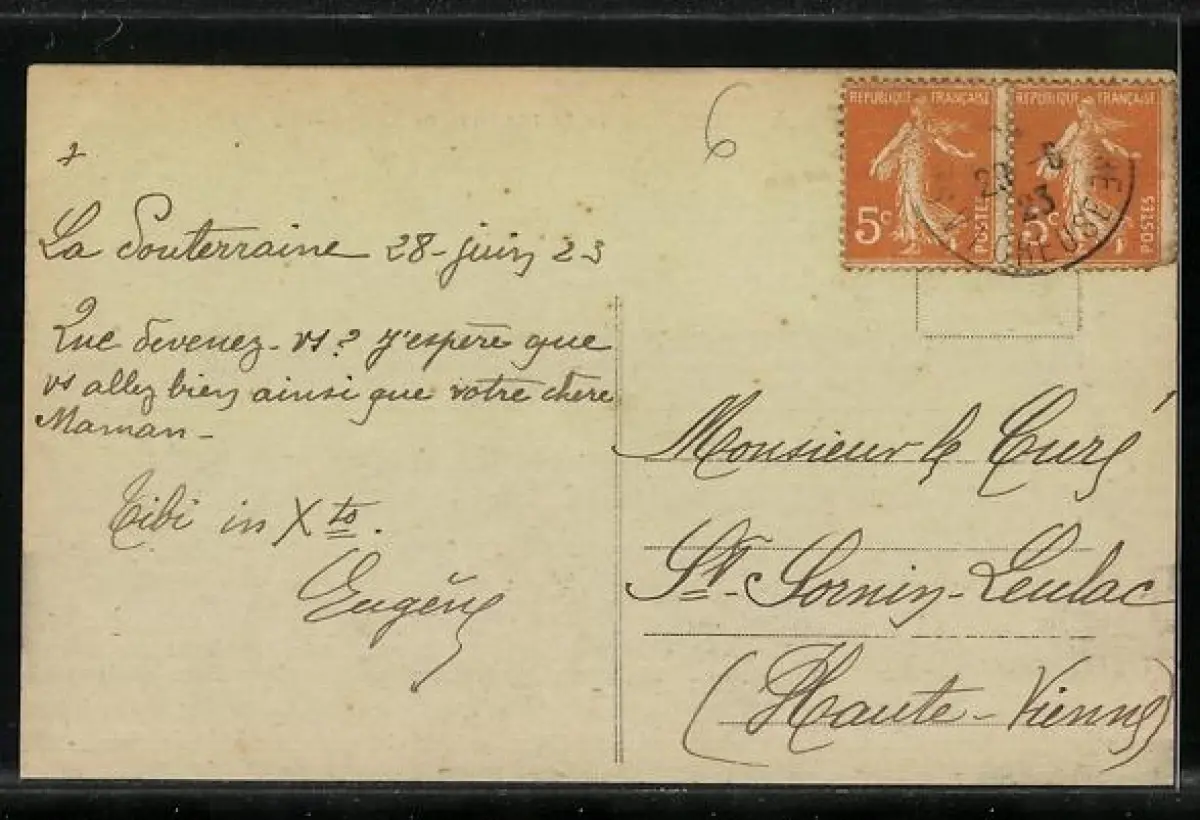 6
RÉPUBLIQUE FRANÇAISE
5c
POSTES
RÉPUBLIQUE FRANÇAISE
5c
POSTES
6
23
CREUSE
+
La Souterraine 28-juin 23
Que devenez-vs? J'espère que
vs allez bien ainsi que votre chère
Maman-
Tibi in Xto.
Eugène
Monsieur le Curé
St-Sornin-Leulac
(Haute-Vienne)